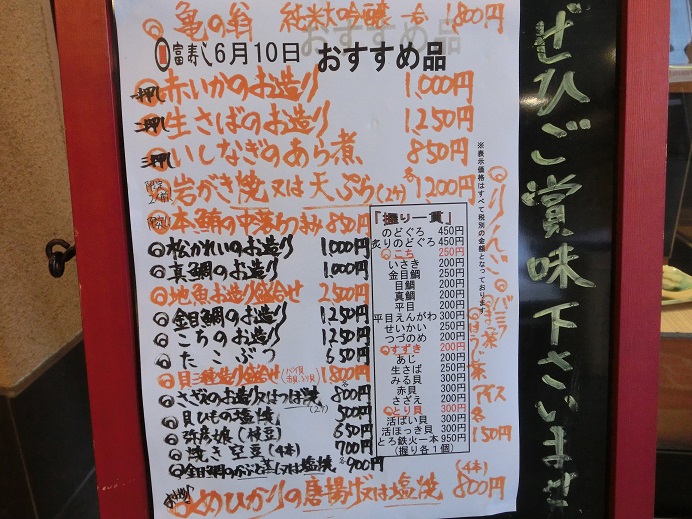 亀の翁 純米大吟醸 一合 1,800円
富寿し 6月10日 おすすめ品
一押し 赤いかのお造り 1,000円
二押し 生さばのお造り 1,250円
三押し いしなぎのあら煮 850円
岩がき焼又は天ぷら(2ケ) 各1,200円
本鮪の中落ちつまみ 850円
松かれいのお造り 1,000円
真鯛のお造り 1,000円
地魚お造り盛合せ 2,500円
金目鯛のお造り 1,250円
こちのお造り 1,250円
たこぶつ 650円
貝三種造り盛合せ 1,800円
さざえのお造り又はつぼ焼(2ケ) 各800円
貝ひもの塩焼 500円
弥彦娘(枝豆) 650円
焼き空豆(4本) 700円
金目鯛のかぶと蒸し又は塩焼 各900円
めひかりの唐揚げ又は塩焼(4本) 各800円
『握り一貫』
のどぐろ 450円
炙りのどぐろ 450円
こち 250円
いさき 200円
金目鯛 200円
目鯛 200円
真鯛 200円
平目 200円
平目えんがわ 300円
せいかい 250円
つづのめ 200円
すずき 200円
あじ 200円
生さば 250円
みる貝 300円
赤貝 300円
さざえ 200円
とり貝 300円
活ばい貝 300円
活ほっき貝 300円
とろ鉄火一本 950円
(握り各1個)
※表示価格はすべて税別の金額となっております。
りんご
バニラ
抹茶
ほうじ茶
アイス
各150円
ぜひご賞味下さいませ